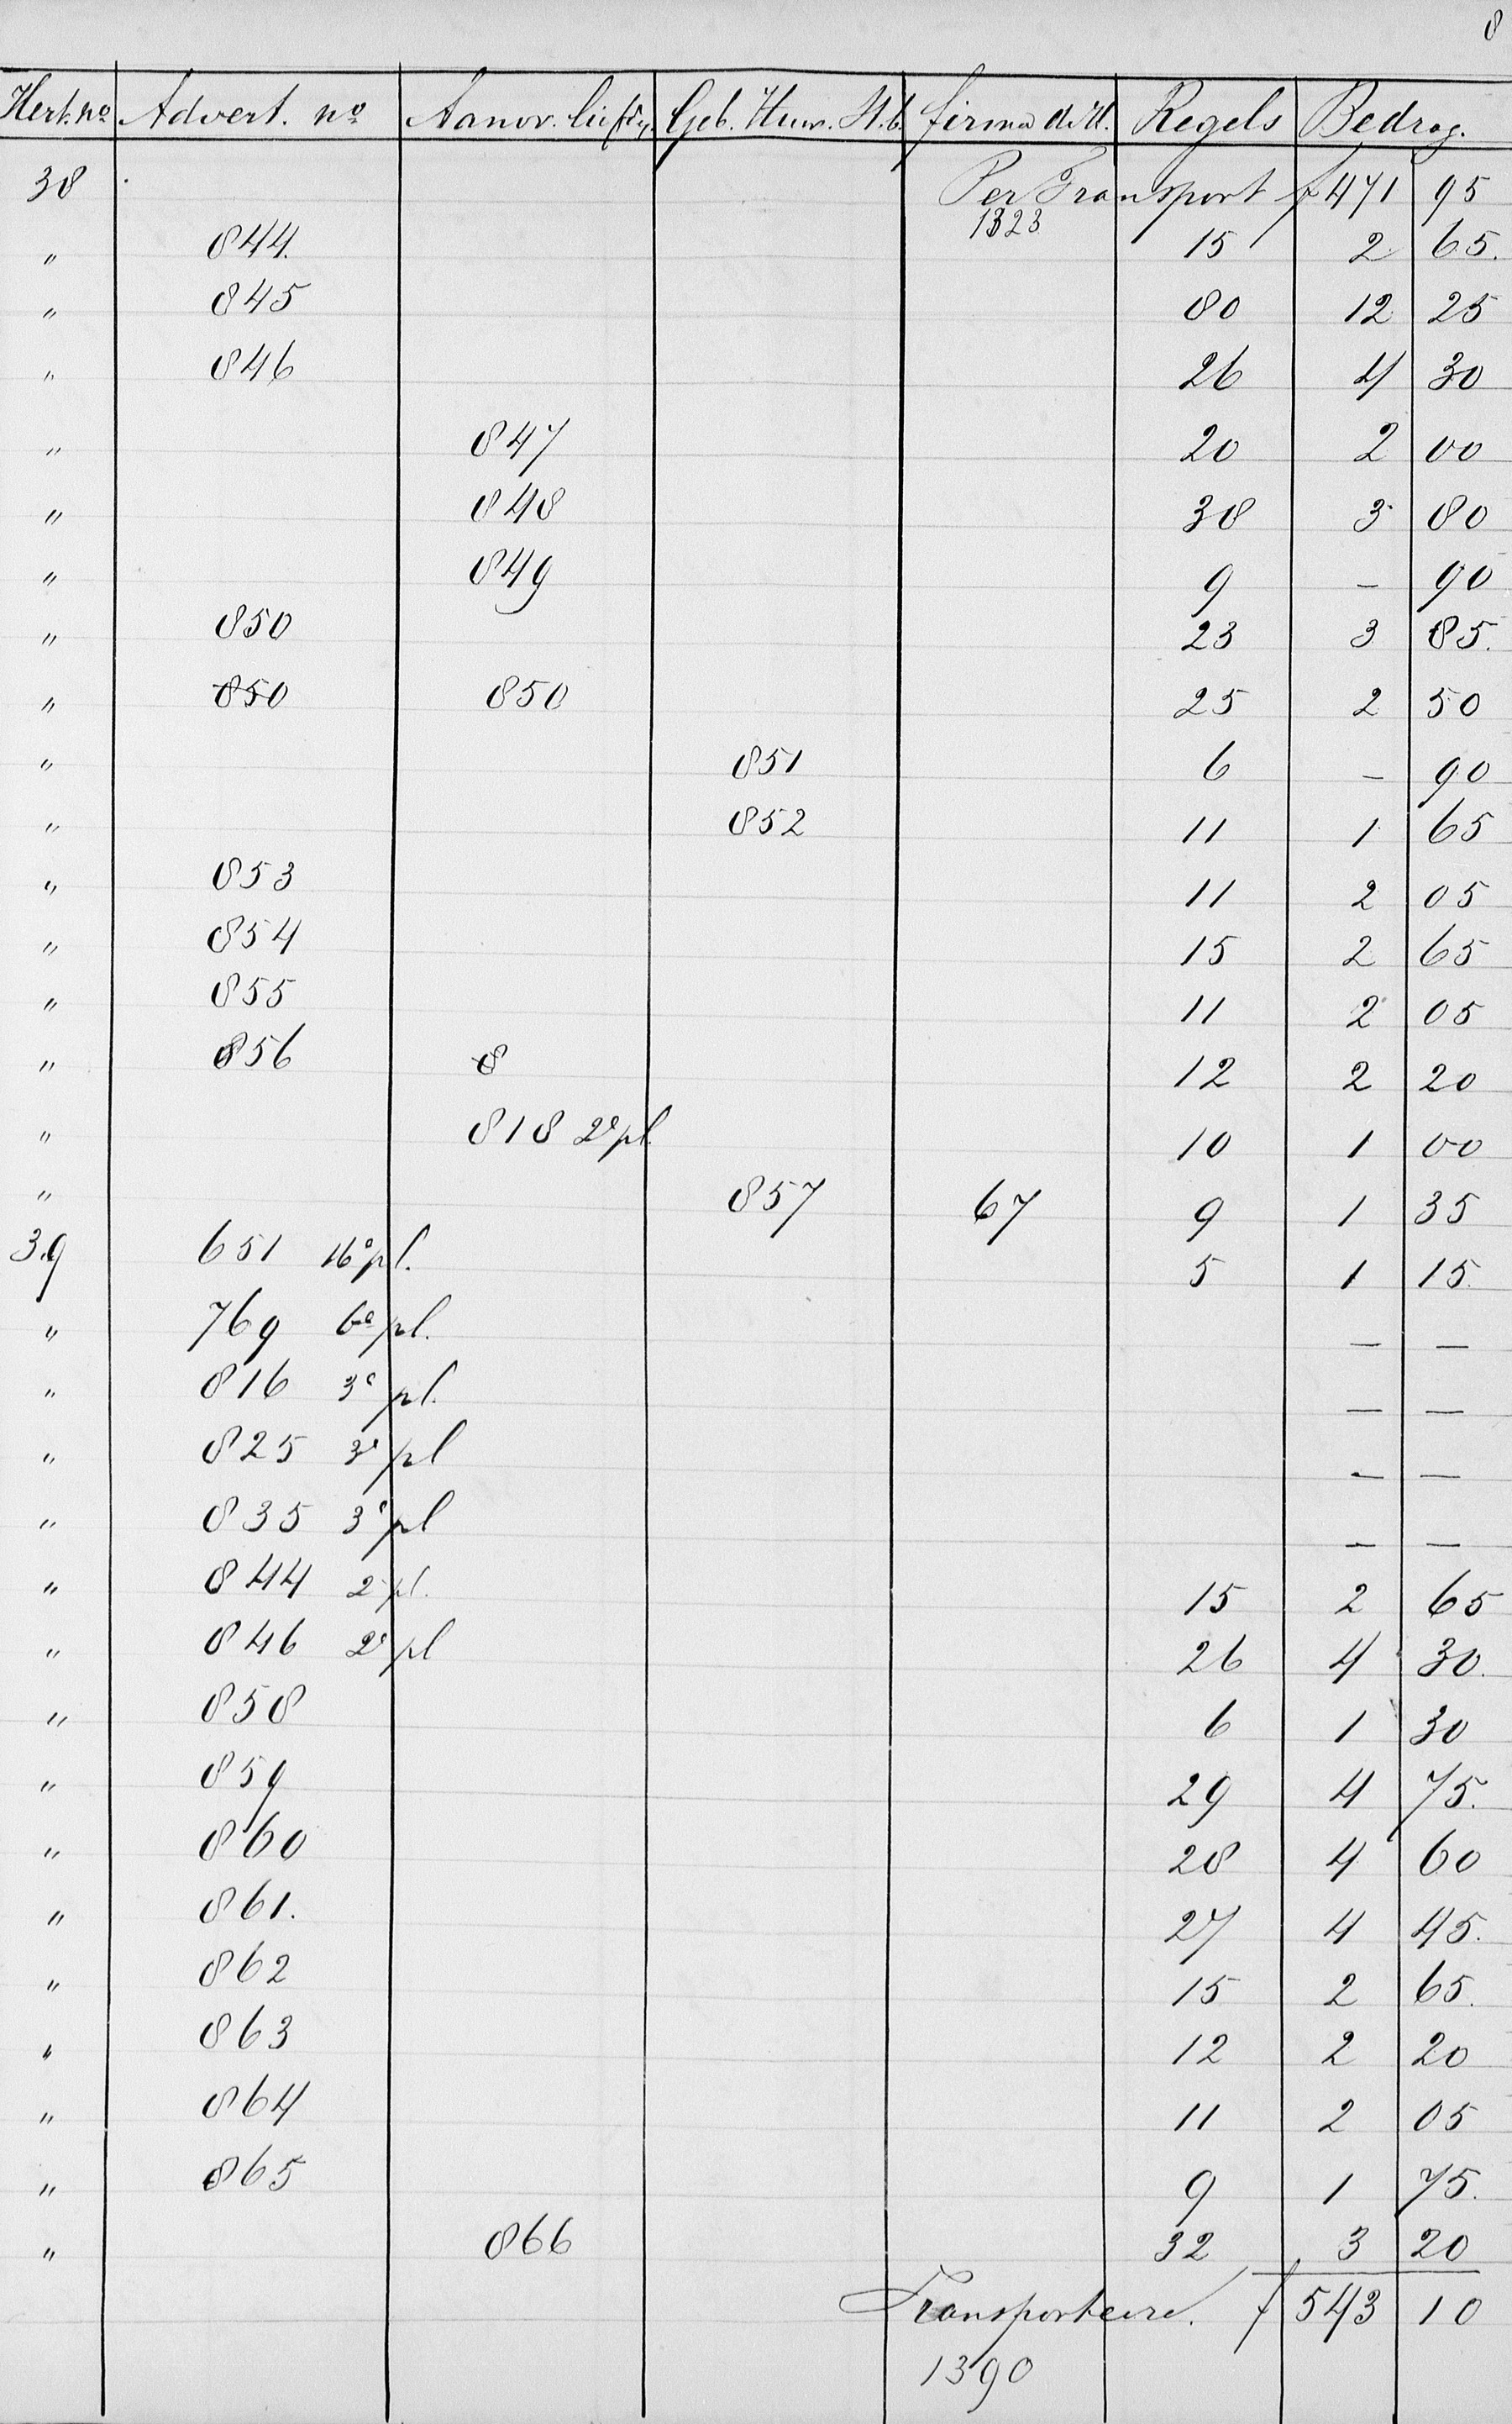 8
Advert. no Geb. Huw. St.b. firma Regels Bedrag.
38 Per Transport f 471 95
1323
" 844. 15 2 65.
" 845 80 12 25
" 846 26 4 30
" 847 20 2 00
" 848 38 3 80
" 849 9 - 90
" 850 23 3 85.
" 850 850 25 2 50
" 851 6 - 90
" 852 11 1 65
" 853 11 2 05
" 854 15 2 65
" 855 11 2 05
" 856 8 12 2 20
" 818 2e pl. 10 1 00
" 857 67 9 1 35
39 651 16e pl. 5 1 15.
" 769 6e pl. — —
" 816 3e pl. — —
" 825 3e pl — —
" 835 3e pl — —
" 844 2e pl. 15 2 65
" 846 2e pl 26 4 30.
" 858 6 1 30
" 859 29 4 75.
" 860 28 4 60
" 861. 27 4 45.
" 862 15 2 65.
" 863 12 2 20
" 864 11 2 05
" 865 9 1 75.
" 866 32 3 20
Transporteere. f 543 10
1390